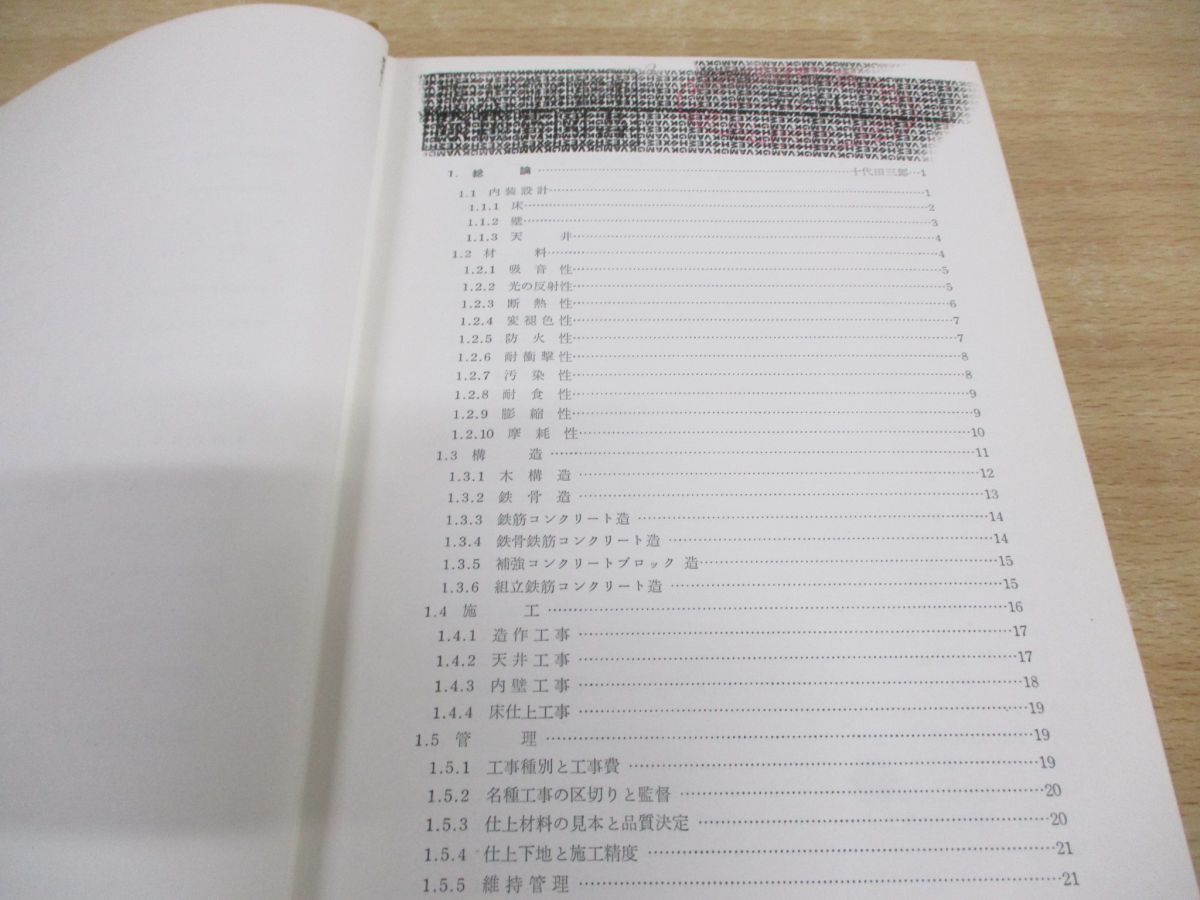 1. 総 論……十代田三郎…1
1.1 内装設計……1
1.1.1 床……2
1.1.2 壁……3
1.1.3 天 井……4
1.2 材 料……4
1.2.1 吸音性……5
1.2.2 光の反射性……5
1.2.3 断熱性……6
1.2.4 変褪色性……7
1.2.5 防火性……7
1.2.6 耐衝撃性……8
1.2.7 汚染性……8
1.2.8 耐食性……9
1.2.9 膨縮性……9
1.2.10 摩耗性……10
1.3 構 造……11
1.3.1 木構造……12
1.3.2 鉄骨造……13
1.3.3 鉄筋コンクリート造……14
1.3.4 鉄骨鉄筋コンクリート造……14
1.3.5 補強コンクリートブロック造……15
1.3.6 組立鉄筋コンクリート造……15
1.4 施 工……16
1.4.1 造作工事……17
1.4.2 天井工事……17
1.4.3 内壁工事……18
1.4.4 床仕上工事……19
1.5 管 理……19
1.5.1 工事種別と工事費……19
1.5.2 名種工事の区切りと監督……20
1.5.3 仕上材料の見本と品質決定……20
1.5.4 仕上下地と施工精度……21
1.5.5 維持管理……21